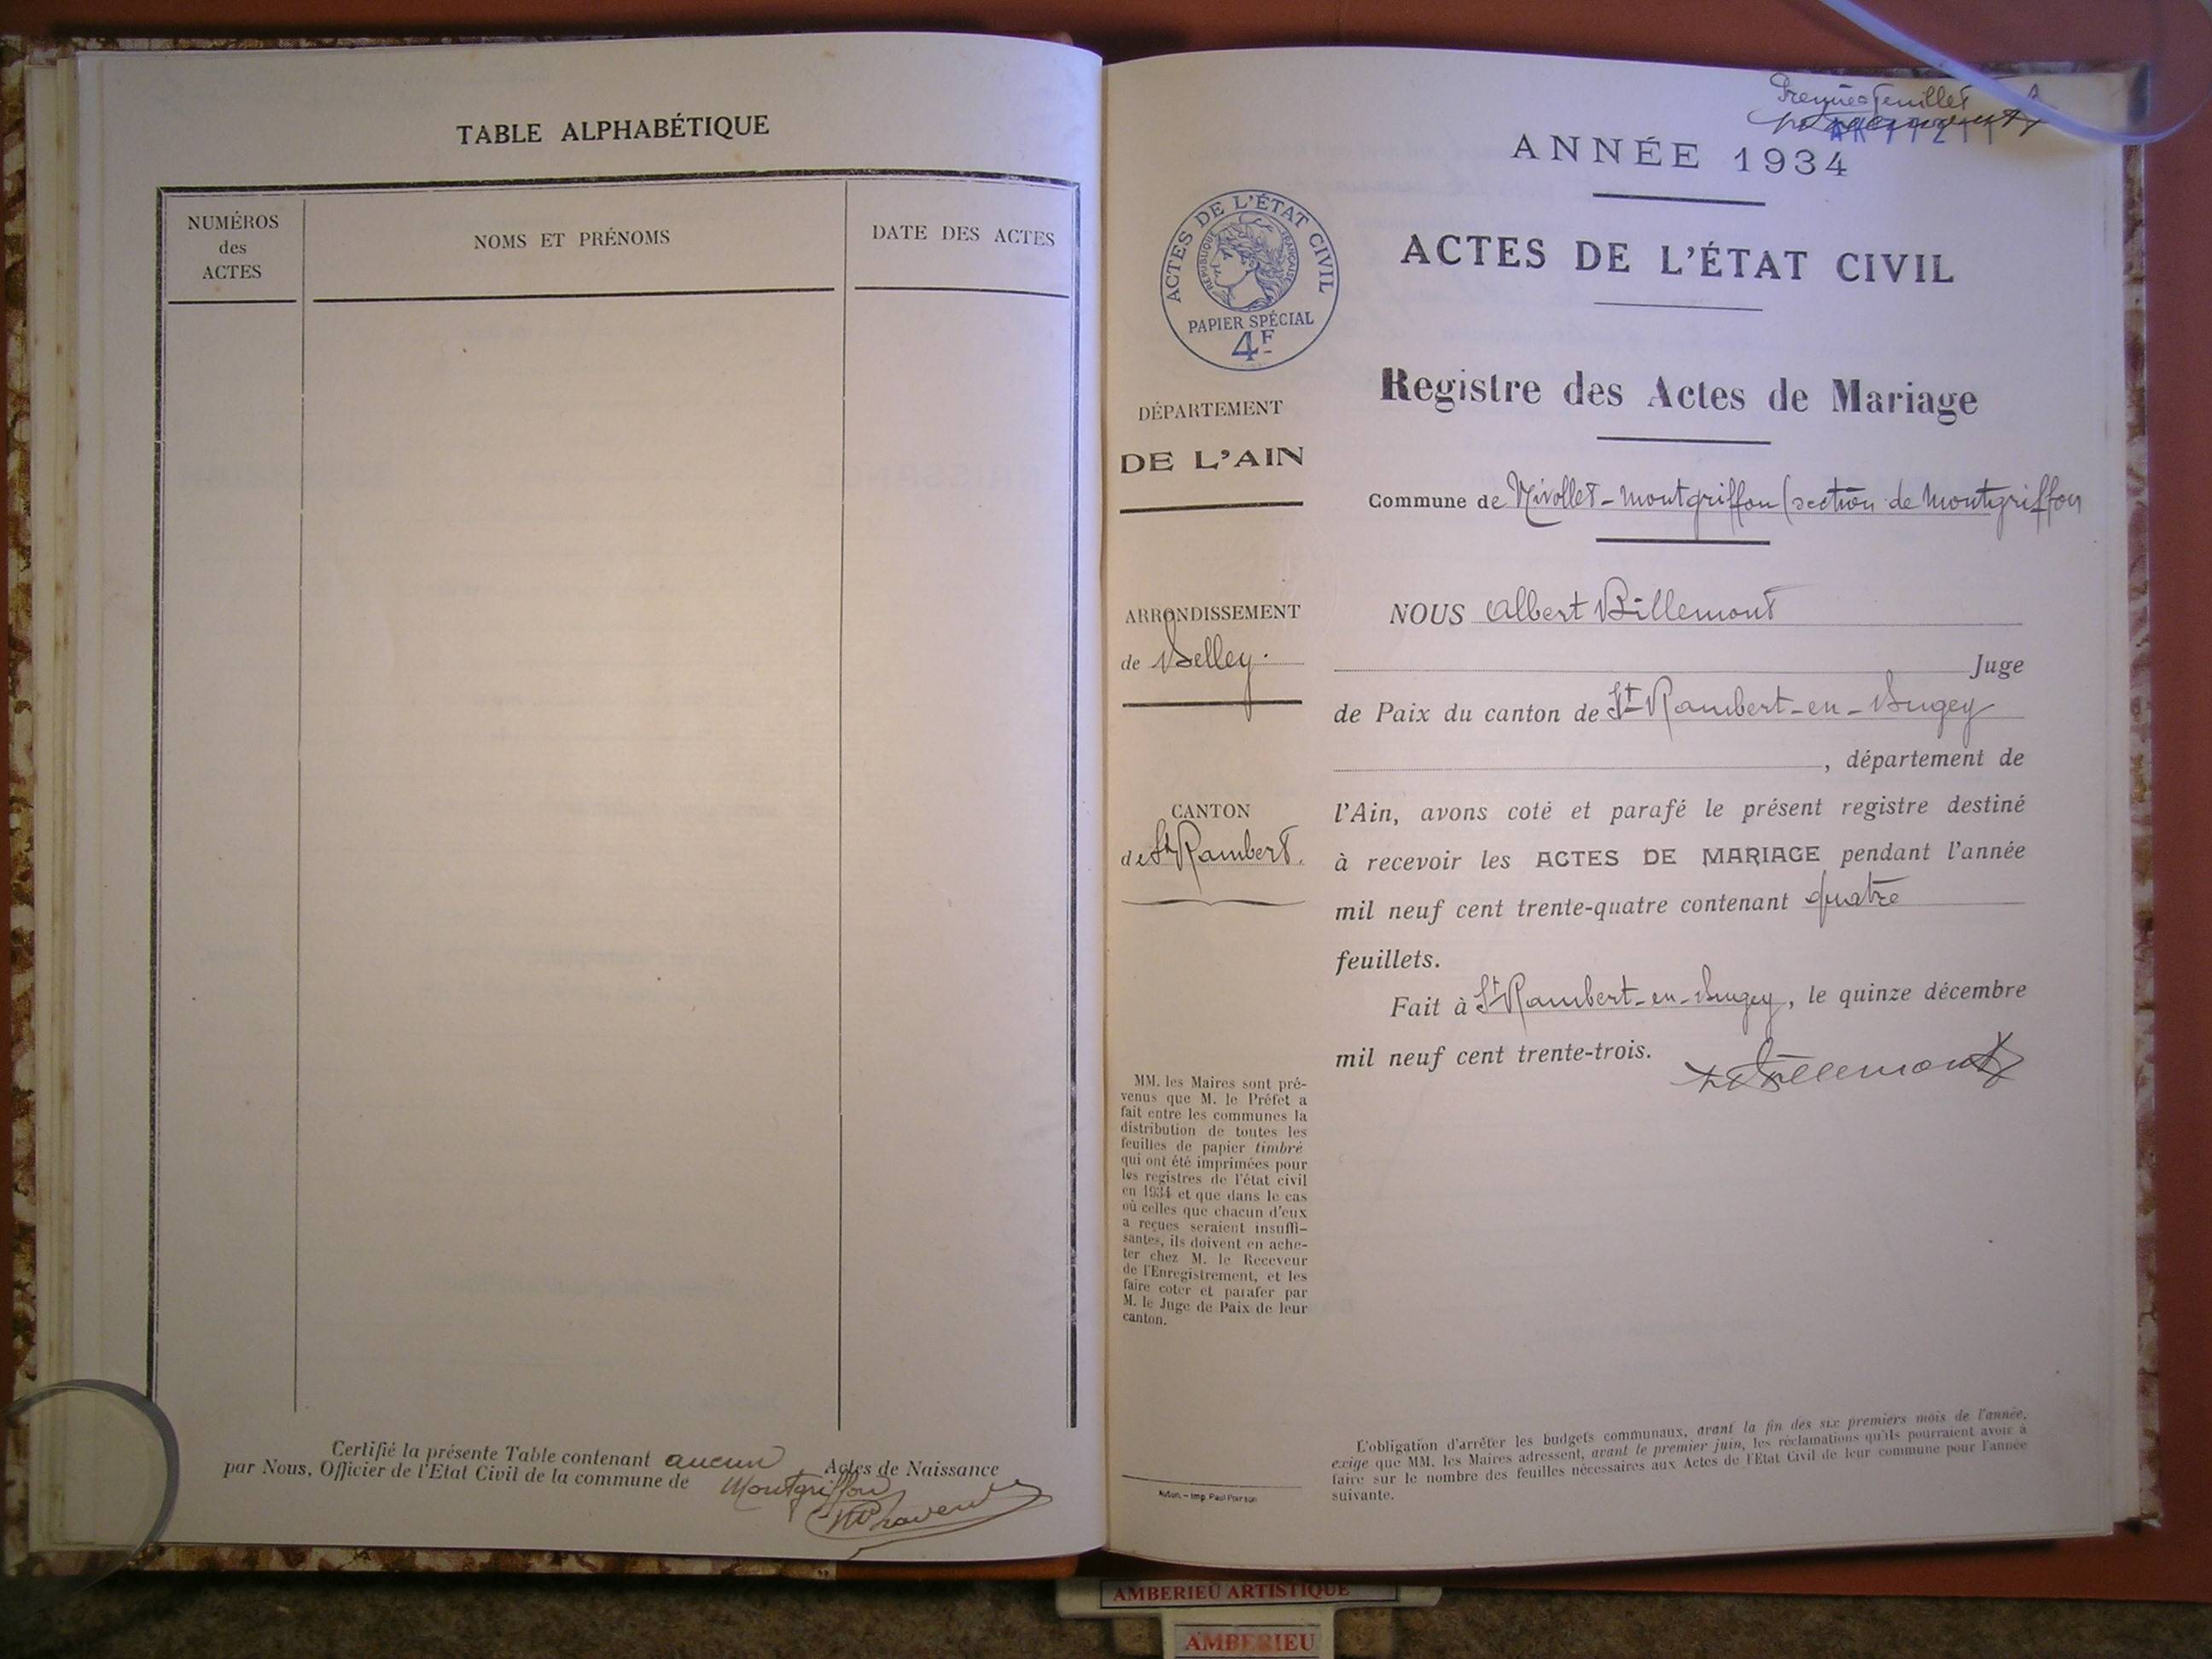 TABLE ALPHABÉTIQUE
NUMÉROS
des
ACTES
NOMS ET PRÉNOMS
DATE DES ACTES
Certifié la présente Table contenant aucun Actes de Naissance
par Nous, Officier de l'Etat Civil de la commune de Montgriffon
feuillet
ANNÉE 1934
ACTES DE L'ÉTAT CIVIL
RÉPUBLIQUE FRANÇAISE
PAPIER SPÉCIAL
4F
ACTES DE L'ÉTAT CIVIL
Registre des Actes de Mariage
DÉPARTEMENT
DE L'AIN
Commune de Nivollet-Montgriffon (section de Montgriffon
ARRONDISSEMENT
de Belley.
CANTON
de St Rambert.
NOUS Albert Billemont
Juge
de Paix du canton de St Rambert-en-Bugey
, département de
l'Ain, avons coté et parafé le présent registre destiné
à recevoir les ACTES DE MARIAGE pendant l'année
mil neuf cent trente-quatre contenant quatre
feuillets.
Fait à St Rambert-en-Bugey, le quinze décembre
mil neuf cent trente-trois.
Billemont
MM. les Maires sont pré-
venus que M. le Préfet a
fait entre les communes la
distribution de toutes les
feuilles de papier timbré
qui ont été imprimées pour
les registres de l'état civil
en 1934 et que dans le cas
où celles que chacun d'eux
a reçues seraient insuffi-
santes, ils doivent en ache-
ter chez M. le Receveur
de l'Enregistrement, et les
faire coter et parafer par
M. le Juge de Paix de leur
canton.
L'obligation d'arrêter les budgets communaux, avant la fin des six premiers mois de l'année,
exige que MM. les Maires adressent, avant le premier juin, les réclamations qu'ils pourraient avoir à
faire sur le nombre des feuilles nécessaires aux Actes de l'Etat Civil de leur commune pour l'année
suivante.
Imp. Paul
AMBERIEU ARTISTIQUE
AMBERIEU